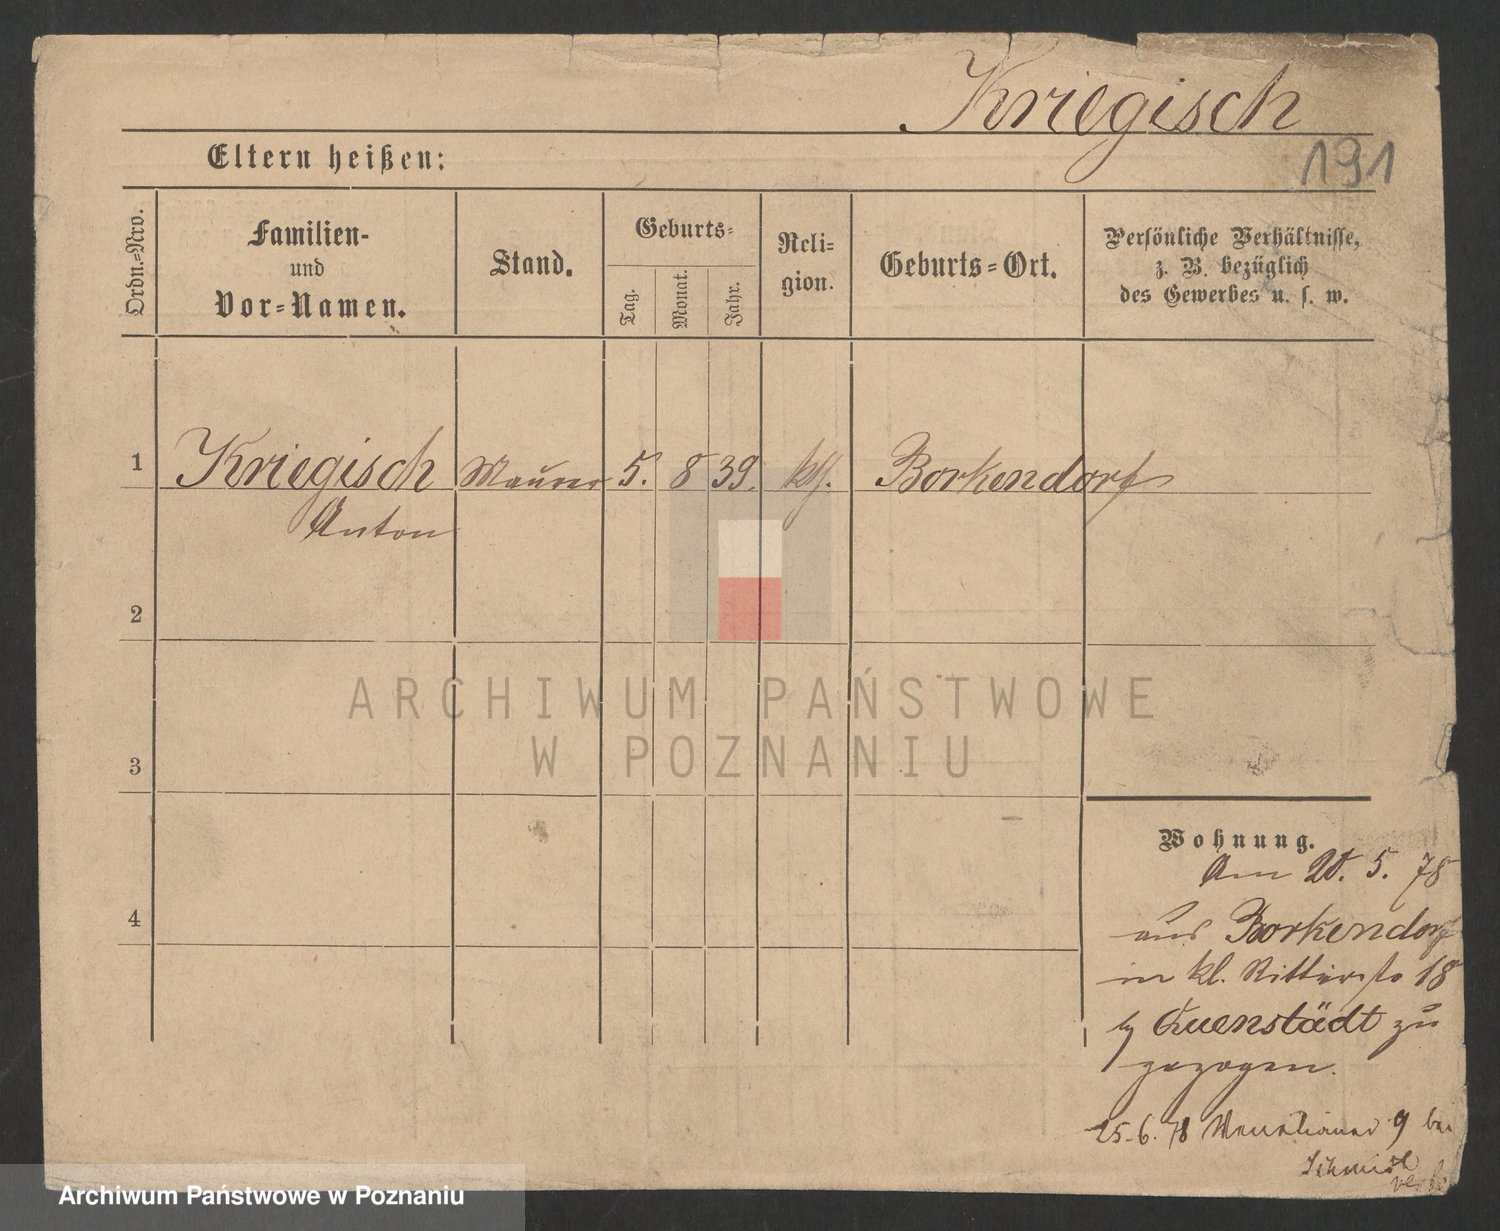 Kriegisch
191
Eltern heißen:
Ordn.=Nro.
Familien-
und
Vor=Namen.
Stand.
Geburts=
Tag.
Monat.
Jahr.
Reli=
gion.
Geburts=Ort.
Persönliche Verhältnisse,
z. B. bezüglich
des Gewerbes u. s. w.
1 Kriegisch Maurer 5. 8 39. kth. Borkendorf
Anton
2
3
4
Wohnung.
Am 20. 5. 78
aus Borkendorf
in kl. Ritterstr 18
b/ Quenstädt zu
gezogen.
25.6.78 Venetianer 9 bei
Schmidt
ARCHIWUM PAŃSTWOWE
W POZNANIU
Archiwum Państwowe w Poznaniu